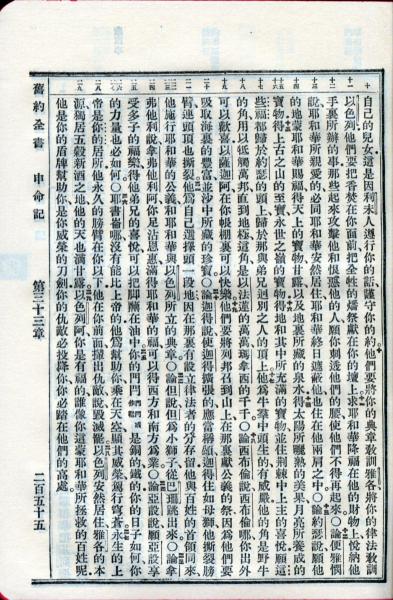 自己的兒女這是因利未人遵行你的話謹守你的約他們要將你的典章教訓雅各將你的律法教訓
以色列他們要把香焚在你面前把全牲的燔祭獻在你的壇上求耶和華降福在他的財物上悅納他
手裏所辦的事那些起來攻擊他和恨惡他的人願你刺透他們的腰使他們不得再起來〇論便雅憫
說耶和華所親愛的必同耶和華安然居住耶和華終日遮蔽他也住在他兩肩之中〇論約瑟說願他
的地蒙耶和華賜福得天上的寶物甘露以及地裏所藏的泉水得太陽所曬熟的美果月亮所養成的
寶物得上古之山的至寶永世之嶺的寶物得地和其中所充滿的寶物並住荊棘中上主的喜悅願這
些福都歸於約瑟的頭上歸於那與弟兄迥別之人的頂上他為牛羣中頭生的有威嚴他的角是野牛
的角用以牴觸萬邦直到地極這角是以法蓮的萬萬瑪拿西的千千〇論西布倫說西布倫哪你出外
可以歡喜以薩迦阿在你帳棚裏可以快樂他們要將列邦召到山上在那裏獻公義的祭因為他們要
吸取海裏的豐富並沙中所藏的珍寶〇論迦得說使迦得擴張的應當稱頌迦得住如母獅他撕裂膀
臂連頭頂也撕裂他為自己選擇頭一段地因在那裏有設立律法者的分存留他與百姓的首領同來
他施行耶和華的公義和耶和華與以色列所立的典章〇論但說但為小獅子從巴珊跳出來〇論拿
弗他利說拿弗他利阿你足沾恩惠滿得耶和華的福可以得西方和南方為業〇論亞設說願亞設享
受多子的福樂得他弟兄的喜悅可以把腳蘸在油中你的門閂門閂或作鞋是銅的鐵的你的日子如何你
的力量也必如何〇耶書崙哪沒有能比上帝的他為幫助你乘在天空顯其威榮駕行穹蒼永生的上
帝是你的居所他永久的膀臂在你以下他在你前面攆出仇敵說毀滅罷以色列安然居住雅各的本
源獨居五穀新酒之地他的天也滴甘露以色列阿你是有福的誰像你這蒙耶和華所拯救的百姓呢
他是你的盾牌幫助你是你威榮的刀劍你的仇敵必投降你你必踏在他們的高處
舊約全書 申命記 第三十三章 二百五十五